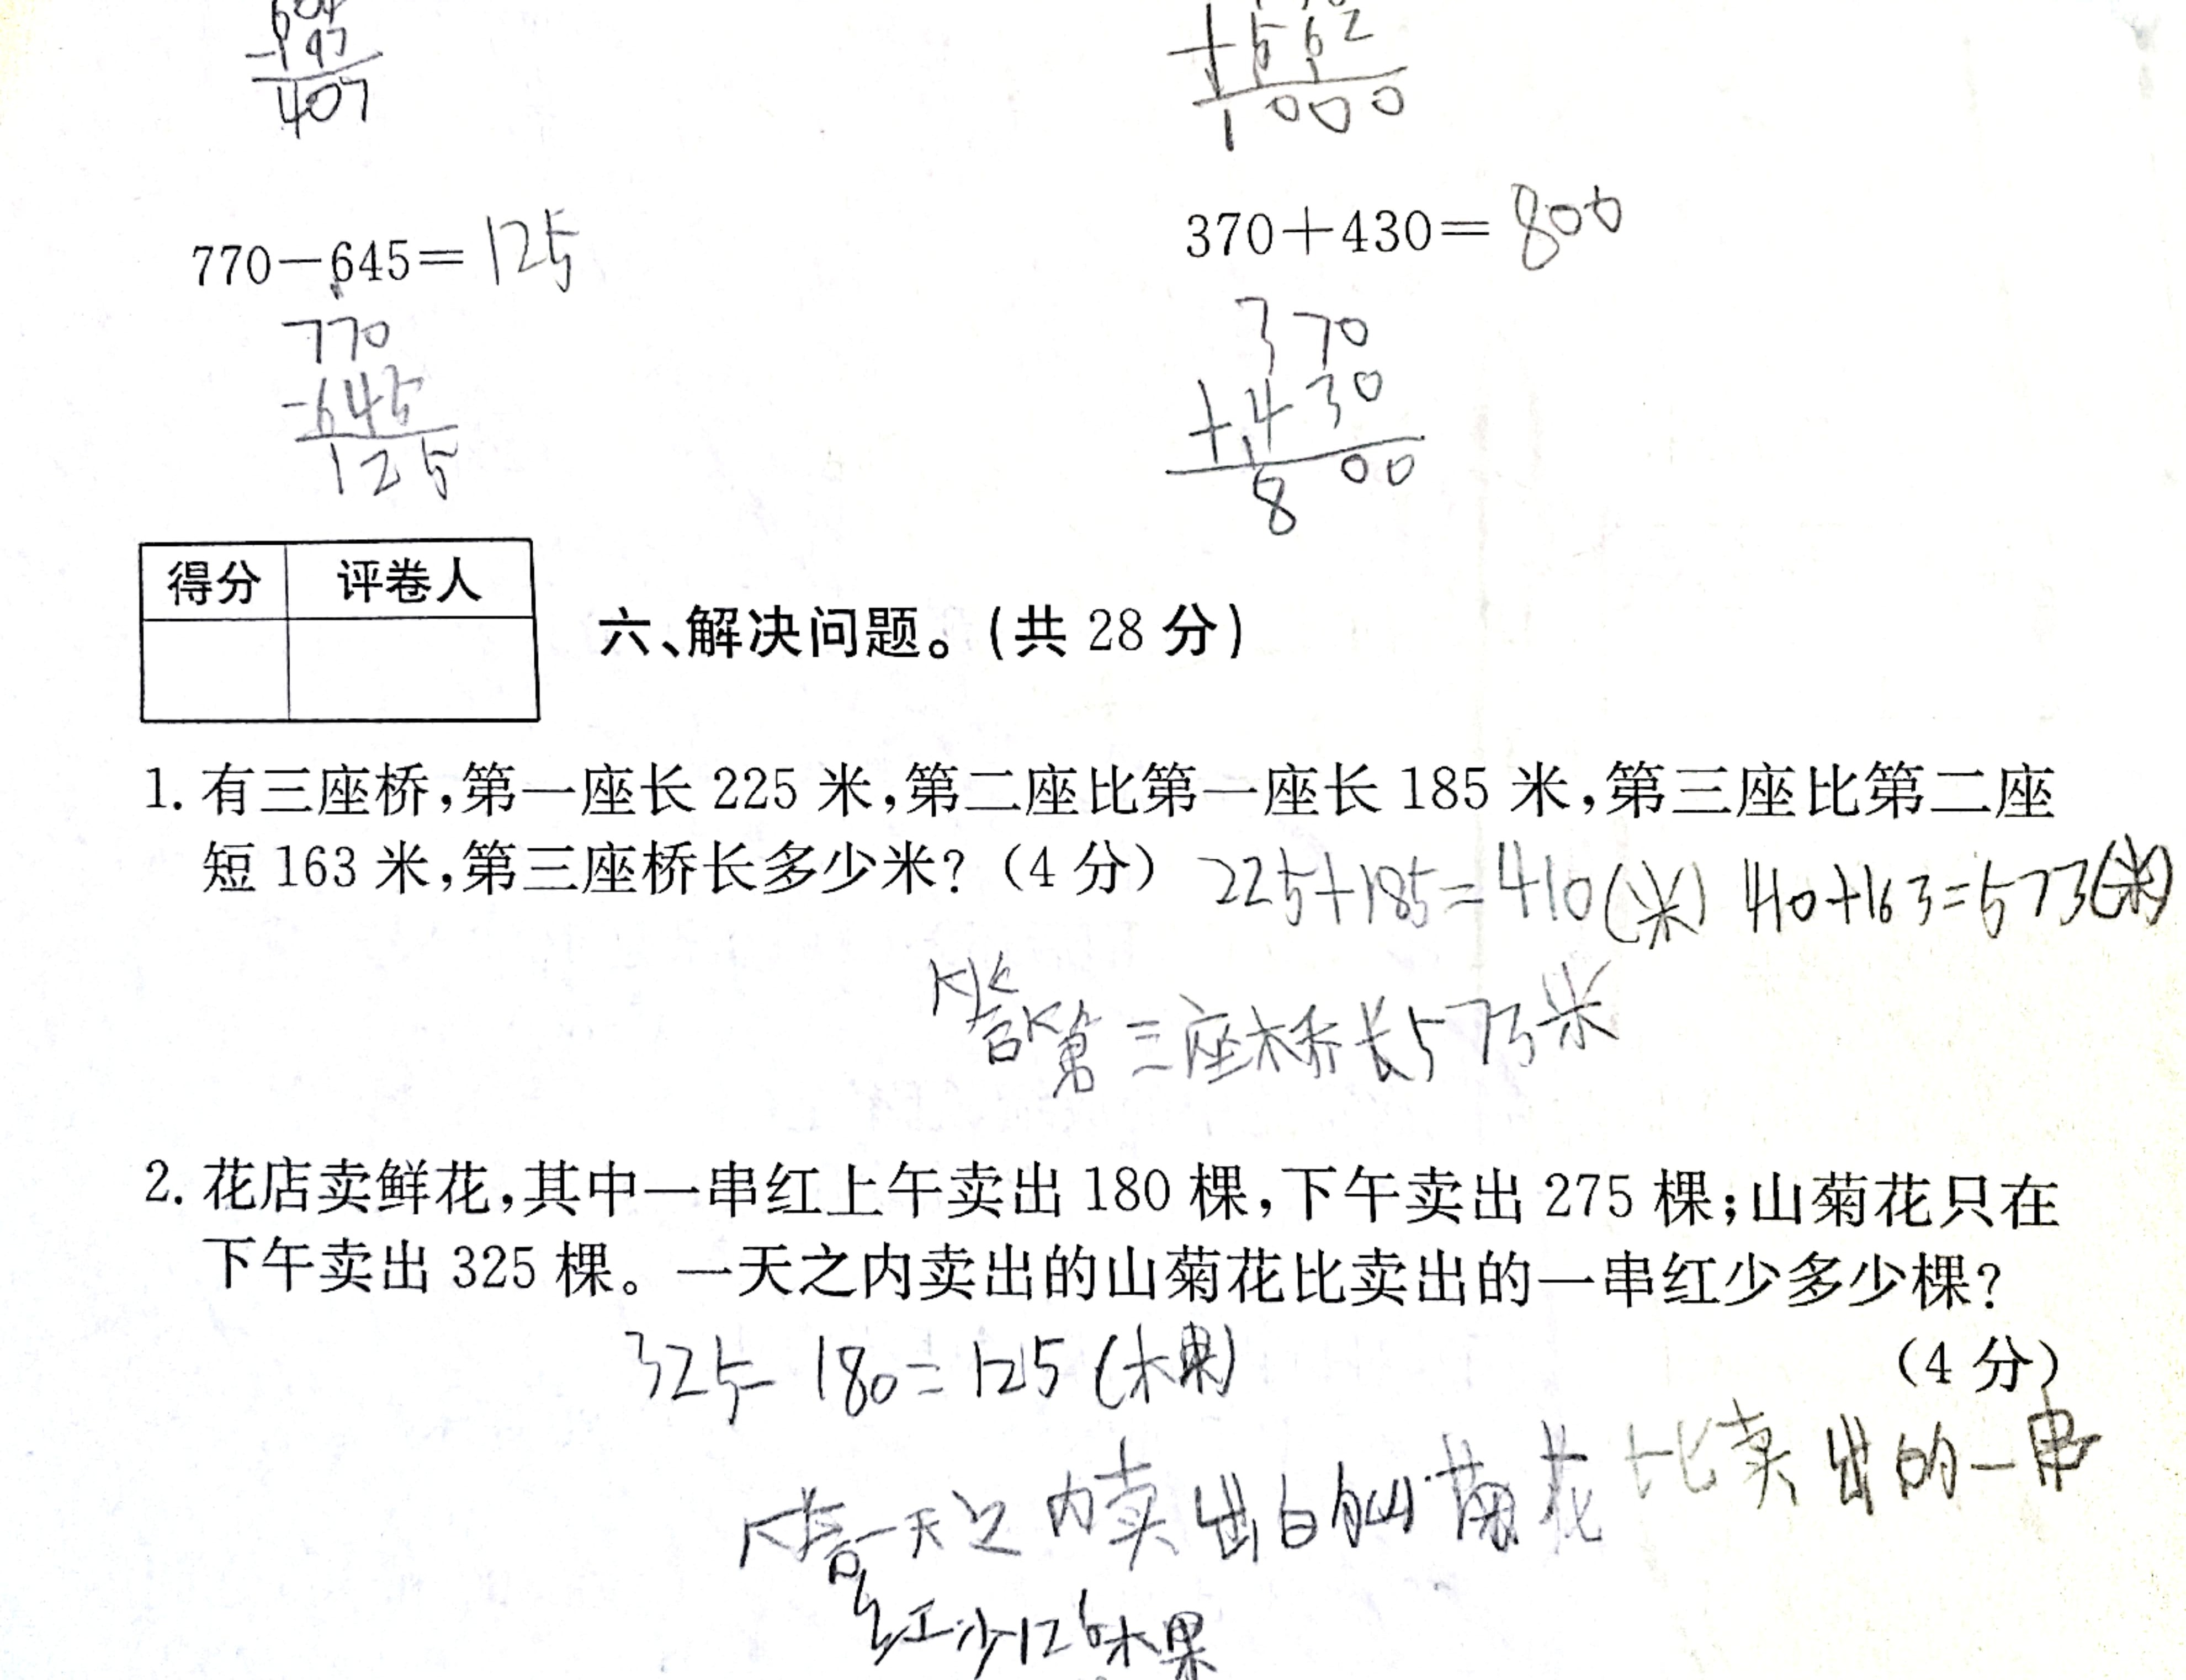 604
-197
407
+562
1000
770－645＝125
770
-645
125
370＋430＝800
370
+430
800
得分 评卷人
六、解决问题。(共 28 分)
1. 有三座桥,第一座长 225 米,第二座比第一座长 185 米,第三座比第二座
短 163 米,第三座桥长多少米?(4 分) 225+185=410(米) 410+163=573(米)
答第三座桥长573米
2. 花店卖鲜花,其中一串红上午卖出 180 棵,下午卖出 275 棵;山菊花只在
下午卖出 325 棵。一天之内卖出的山菊花比卖出的一串红少多少棵?
(4 分)
325-180=125(棵)
答一天之内卖出的山菊花比卖出的一串
红少125棵